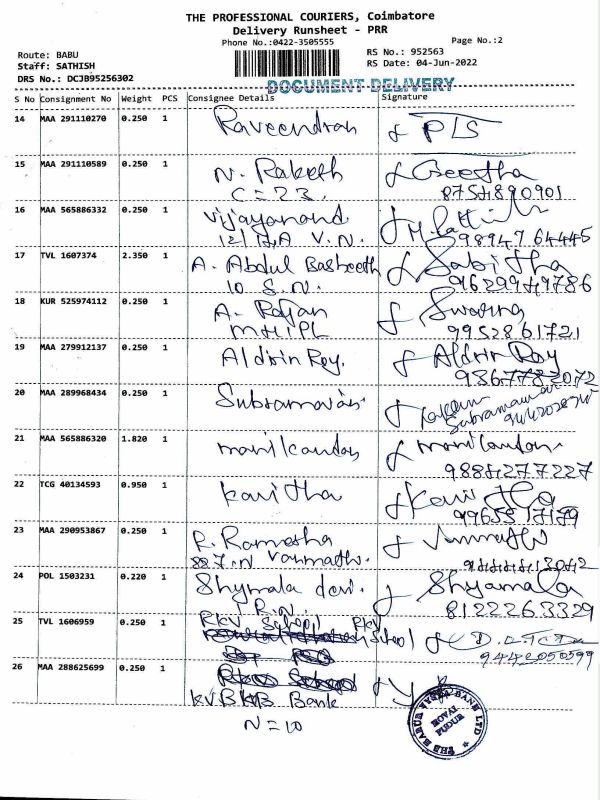 THE PROFESSIONAL COURIERS, Coimbatore
Delivery Runsheet - PRR
Phone No.:0422-3505555
Page No.:2
Route: BABU
RS No.: 952563
Staff: SATHISH
RS Date: 04-Jun-2022
DRS No.: DCJB95256302
DOCUMENT DELIVERY
S No Consignment No Weight PCS Consignee Details Signature
14 MAA 291110270 0.250 1 Raveendran PLS
15 MAA 291110589 0.250 1 N. Rakesh Geetha
C=23.
16 MAA 565886332 0.250 1 Vijayanand
V.N. 98947 64445
17 TVL 1607374 2.350 1 A. Abdul Basheeth Sabitha
10 S.N. 9629949786
18 KUR 525974112 0.250 1 A. Rajan
9952861721
19 MAA 279912137 0.250 1 Aldrin Roy. Aldrin Roy
9367782072
20 MAA 289968434 0.250 1
Subramaniam
21 MAA 565886320 1.820 1 manikandan manikandan
9884277227
22 TCG 40134593 0.950 1 kavitha Kavitha
23 MAA 290953867 0.250 1 R. Ramesha
24 POL 1503231 0.220 1 Shymala devi. Shyamala
R.N. 8122263329
25 TVL 1606959 0.250 1 RKV School RKV
School
9442050599
26 MAA 288625699 0.250 1
KVB KVB Bank
N=10